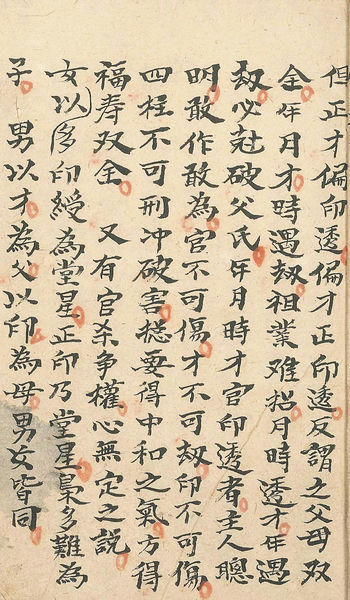 但正才偏印透偏才正印透反謂之父母双
全年月才時遇刼祖業难招月時透才年遇
刼必尅破父氏年月時才官印透者主人聰
明敢作敢為官不可傷才不可刼印不可傷
四柱不可刑冲破害捴要得中和之氣方得
福寿双全 又有官杀争權心無定之説
女以 印綬為堂星正印乃堂星梟多難為
子 男以才為父以印為母男女皆同